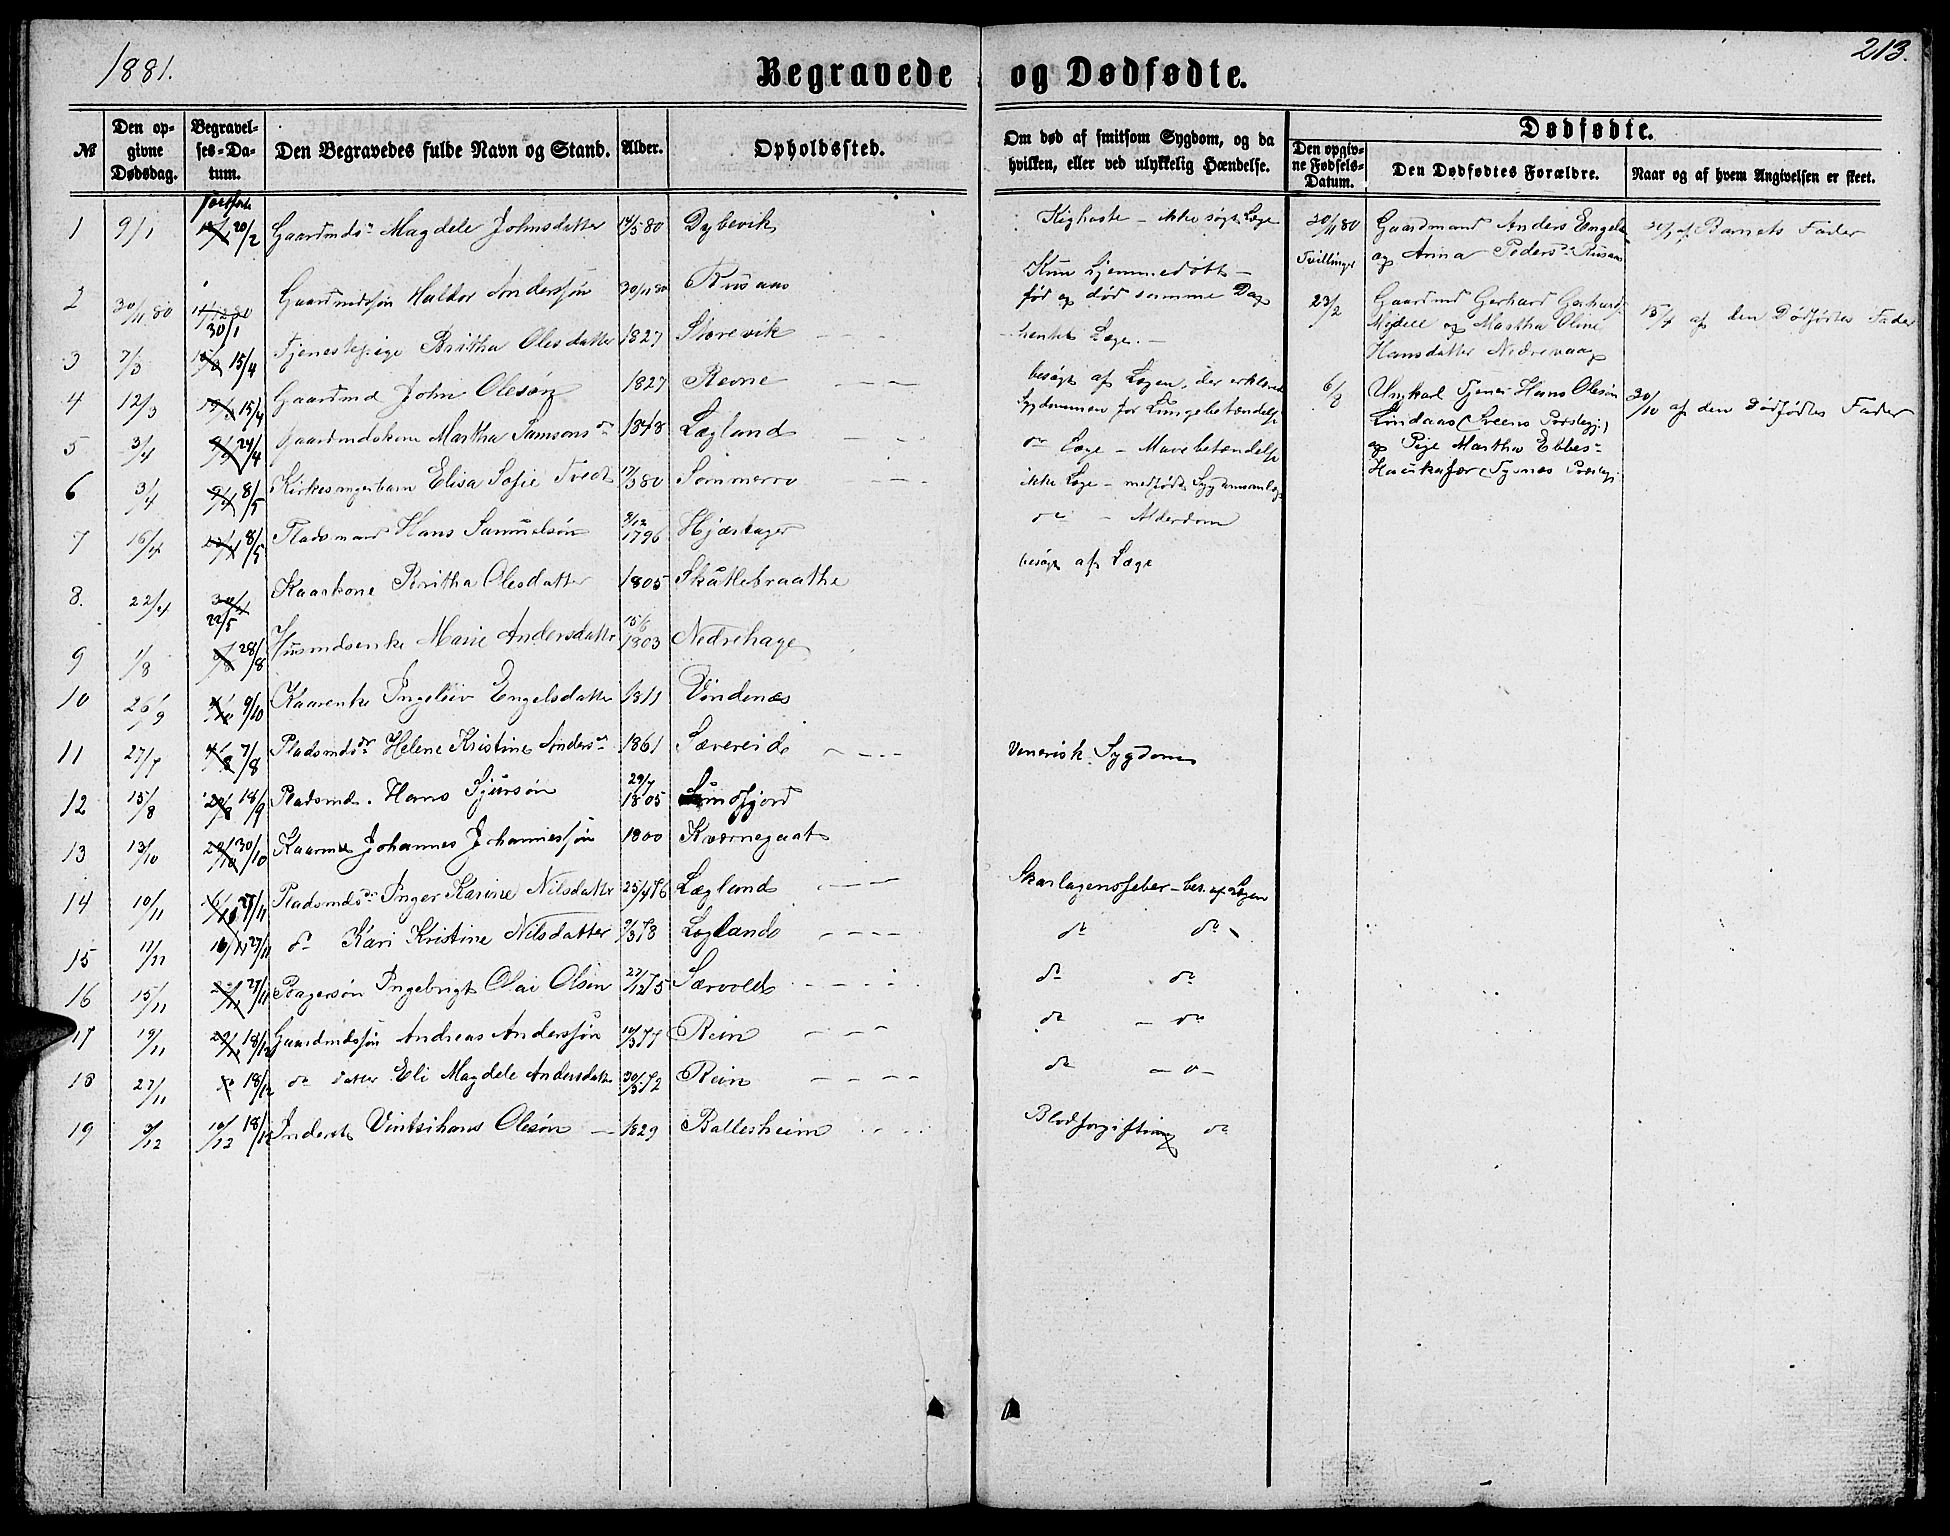 1881.
Begravede og Dødfødte.
213.
№
Den opgivne Dødsdag.
Begravelses-Datum.
Den Begravedes fulde Navn og Stand.
Alder.
Opholdssted.
Om død af smitsom Sygdom, og da hvilken, eller ved ulykkelig Hændelse.
Dødfødte.
Den opgivne Fødsels-Datum.
Den Dødfødtes Forældre.
Naar og af hvem Angivelsen er skeet.
1 9/1 20/2 Gaardmds Magdele Johnsdatter 14/5 80 Dybevik Kighoste – ikke søgt Læge
2 30/11 80 30/1 Gaardmdssøn Haldor Anderssøn 30/11 80 Rusaas Kun hjemmedøbt – født og død samme Dag
3 7/3 15/4 Tjenestepige Britha Olesdatter 1827 Storevik hentet Læge. –
4 12/3 15/4 Gaardmd John Olesøn 1827 Revne besøgt af Lægen, der erklærede Sygdommen for Lungebetændelse
5 3/4 24/4 Gaardmdskone Martha Samsonsdr 1848 Lægland dr Læge – Mavebetændelse
6 3/4 8/5 Kirkesangerbarn Elisa Sofie Tvedt 17/3 80 Sommerro ikke Læge – medfødt Sygdomsanlæg
7 16/4 8/5 Pladsmand Hans Samuelsøn 9/12 1796 Hjæstager do – Alderdom
8. 22/4 22/5 Kaarkone Britha Olesdatter 1805 Skutlebraathe besøgt af Læge
9 1/8 28/8 Husmdsenke Marie Andersdatter 15/6 1803 Nedrehage
10 26/9 9/10 Kaarenke Ingeleiv Engelsdatter 1811 Vindenæs
11 27/7 7/8 Pladsmdsdr Helene Kristine Andersdr 1861 Særereide Venerisk Sygdom
12 15/8 18/9 Pladsmd. Hans Sjursøn 29/7 1805
13 13/10 30/10 Kaarmd Johannes Johannessøn 1800 Kværnegaat
14 10/11 27/11 Pladsmdsdr Inger Karine Nilsdatter 25/4 76 Lægland Skarlagensfeber – bes. af Lægen
15 11/11 27/11 do Kari Kristine Nilsdatter 9/3 78 Lægland do do
16 15/11 27/11 Ingebrigt Olai Olsen 27/12 75 Særvold do – do
17 19/11 18/12 Gaardmdssøn Andreas Anderssøn 10/3 77 Rein do – do
18 27/11 18/12 do datter Eli Magdele Andersdatter 30/3 72 Rein do – o –
19 9/12 18/12 Inderst Olesøn 1829 Ballesheim Blodforgiftning do
20/11 80 Tvillinger
Gaardmand Anders Engels.
og Anna Pedersdr Rusaas
af Barnets Fader
23/2
Gaardmd Gerhard Gerhards.
Mjdell og Martha Oline
Hansdatter Nedrevaag
15/4 af den Dødfødtes Fader
6/8
Ungkarl Tjener Hans Olesøn
Lindaas (Sveens Præstegj.)
og Pige Martha Ebbes-
Haukefær (Tysnæs Præstegj.
30/10 af den Dødfødtes Fader